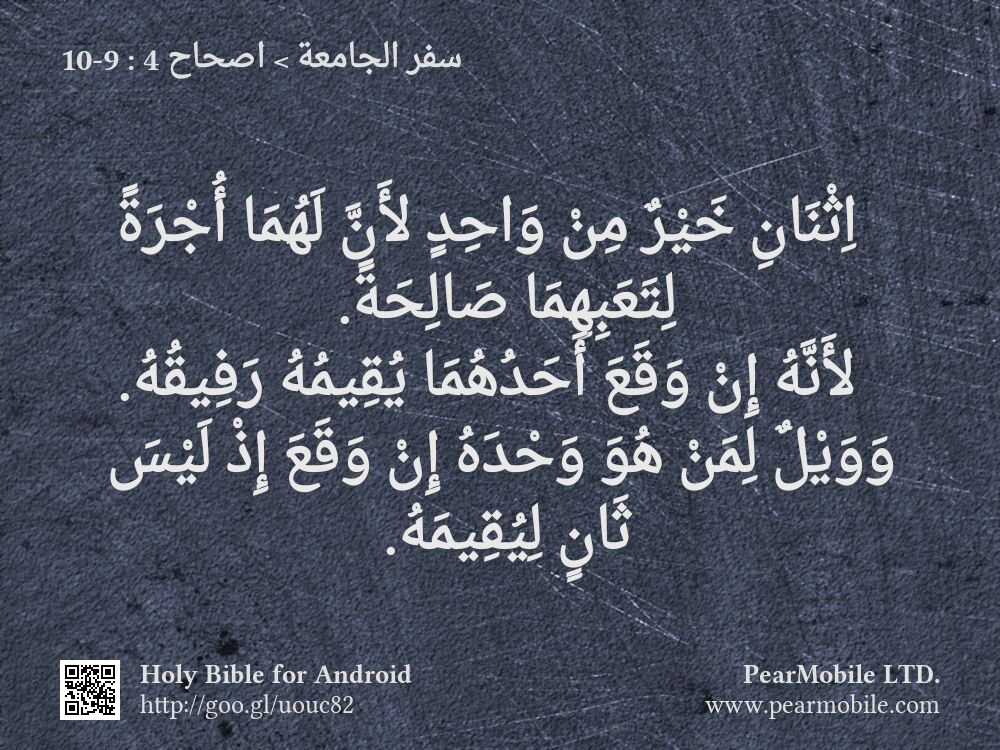 سفر الجامعة > اصحاح 4 : 9-10
اِثْنَانِ خَيْرٌ مِنْ وَاحِدٍ لأَنَّ لَهُمَا أُجْرَةً
لِتَعَبِهِمَا صَالِحَةً.
لأَنَّهُ إِنْ وَقَعَ أَحَدُهُمَا يُقِيمُهُ رَفِيقُهُ.
وَوَيْلٌ لِمَنْ هُوَ وَحْدَهُ إِنْ وَقَعَ إِذْ لَيْسَ
ثَانٍ لِيُقِيمَهُ.
Holy Bible for Android
http://goo.gl/uouc82
PearMobile LTD.
www.pearmobile.com